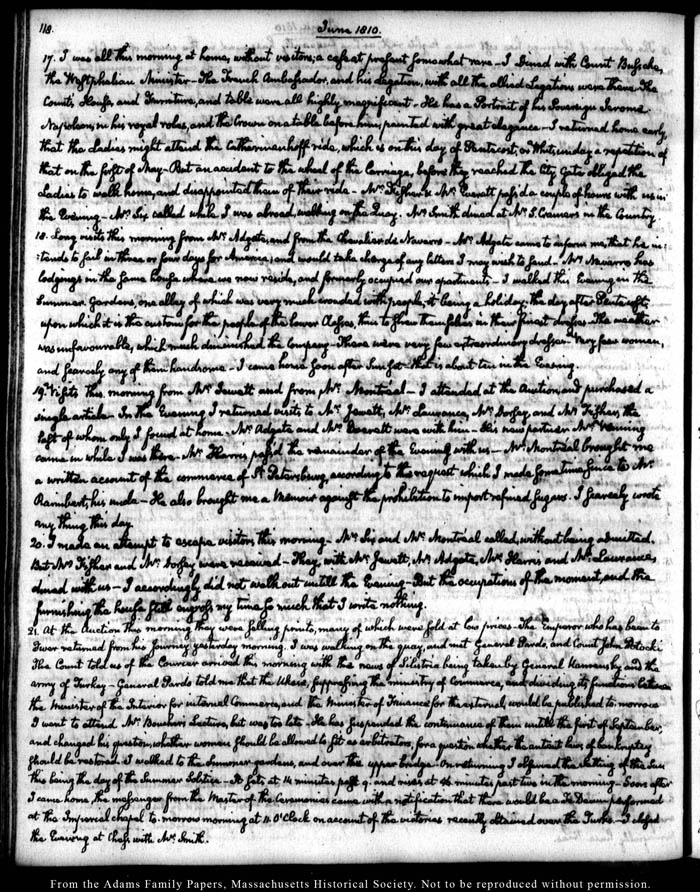 118.
June 1810.
17. I was all this morning at home, without visitors; a case at present somewhat rare — I dined with Count Bussche,
the Westphalian Minister — The French Ambassador, and his legation, with all the allied Legations were there. The
Count's House, and Furniture, and table were all highly magnificent — He has a Portrait of his Sovereign Jerome
Napoleon, in his royal robes, and the Crown on a table before him, painted with great elegance — I returned home early
that the Ladies might attend the Catherinenhoff ride, which is on this day of Pentecost, or Whitsunday a repetition of
that on the first of May — But an accident to the wheel of the Carriage, before they reached the City Gate obliged the
Ladies to walk home, and disappointed them of their ride — Mr. Fisher & Mr. Everett pass'd a couple of hours with us in
the Evening — Mr. Six called while I was abroad, walking on the Quay. Mr. Smith dined at Mr. S. Cramer's in the Country
18. Long visits this morning from Mr. Adgate, and from the Chevalier de Navarro — Mr. Adgate came to inform me, that he in-
:tends to sail in three or four days for America; and would take charge of any letters I may wish to send — Mr. Navarro has
lodgings in the same house where we now reside, and formerly occupied our apartments — I walked this Evening in the
Summer Gardens, one alley of which was very much crowded with people, it being a holiday; the day after Pentecost;
upon which it is the custom for the people of the lower Classes, thus to shew themselves in their finest dresses. The weather
was unfavourable, which much diminished the Company — There were very few extraordinary dresses — Very few women,
and scarcely any of them handsome — I came home soon after Sunset — that is about ten in the Evening.
19. Visits this morning from Mr. Jewett and from Mr. Montréal — I attended at the Auction and purchased a
single article — In the Evening I returned visits to Mr. Jewett, Mr. Lawrance, Mr. Dorsay, and Mr. Fisher, the
last of whom only I found at home. Mr. Adgate and Mr. Everett were with him — His new partner Mr.
came in while I was there. Mr. Harris pass'd the remainder of the Evening with us — Mr. Montréal brought me
a written account of the commerce of St. Petersburg, according to the request which I made sometime since to Mr.
Raimbert, his uncle — He also brought me a Memoir against the prohibition to import refined sugars. I scarcely wrote
any thing this day
20. I made an attempt to escape visitors this morning — Mr. Six and Mr. Montréal called, without being admitted.
But Mr. Fisher and Mr. Dorsay were received — They, with Mr. Jewett, Mr. Adgate, Mr. Harris and Mr. Lawrance,
dined with us — I accordingly did not walk out untill the Evening — But the occupations of the moment, and the
furnishing the house still engross my time so much that I write nothing.
21. At the Auction this morning they were selling prints, many of which were sold at low prices — The Emperor who has been to
Twer returned from his Journey yesterday morning. I was walking on the quay, and met General Pardo, and Count John Potocki
The Count told us of the Courier arrived this morning with the news of Silistria being taken by General Kamensky, and the
army of Turkey — General Pardo told me that the Ukase, suppressing the ministry of Commerce, and dividing its functions between
the Minister of the Interior for internal Commerce, and the Minister of Finances for the external, would be published to-morrow
I want to attend Mr. Lecture, but was too late. He has suspended the continuance of them untill the first of September,
and changed his question, whether women should be allowed to sit as arbitrators, for a question whether the antient laws, of bankruptcy
should be restored. I walked to the Summer gardens, and over the upper bridge. On returning I observed the setting of the Sun
this being the day of the Summer Solstice — It sets at 14 minutes past 9. and rises at 46 minutes past two in the morning — Soon after
I came home, the messenger from the Master of the Ceremonies came with a notification that there would be a Te Deum performed
at the Imperial chapel to-morrow morning at 11 O'Clock on account of the victories recently obtained over the Turks — I closed
the Evening at Chess, with Mr. Smith.
From the Adams Family Papers, Massachusetts Historical Society. Not to be reproduced without permission.